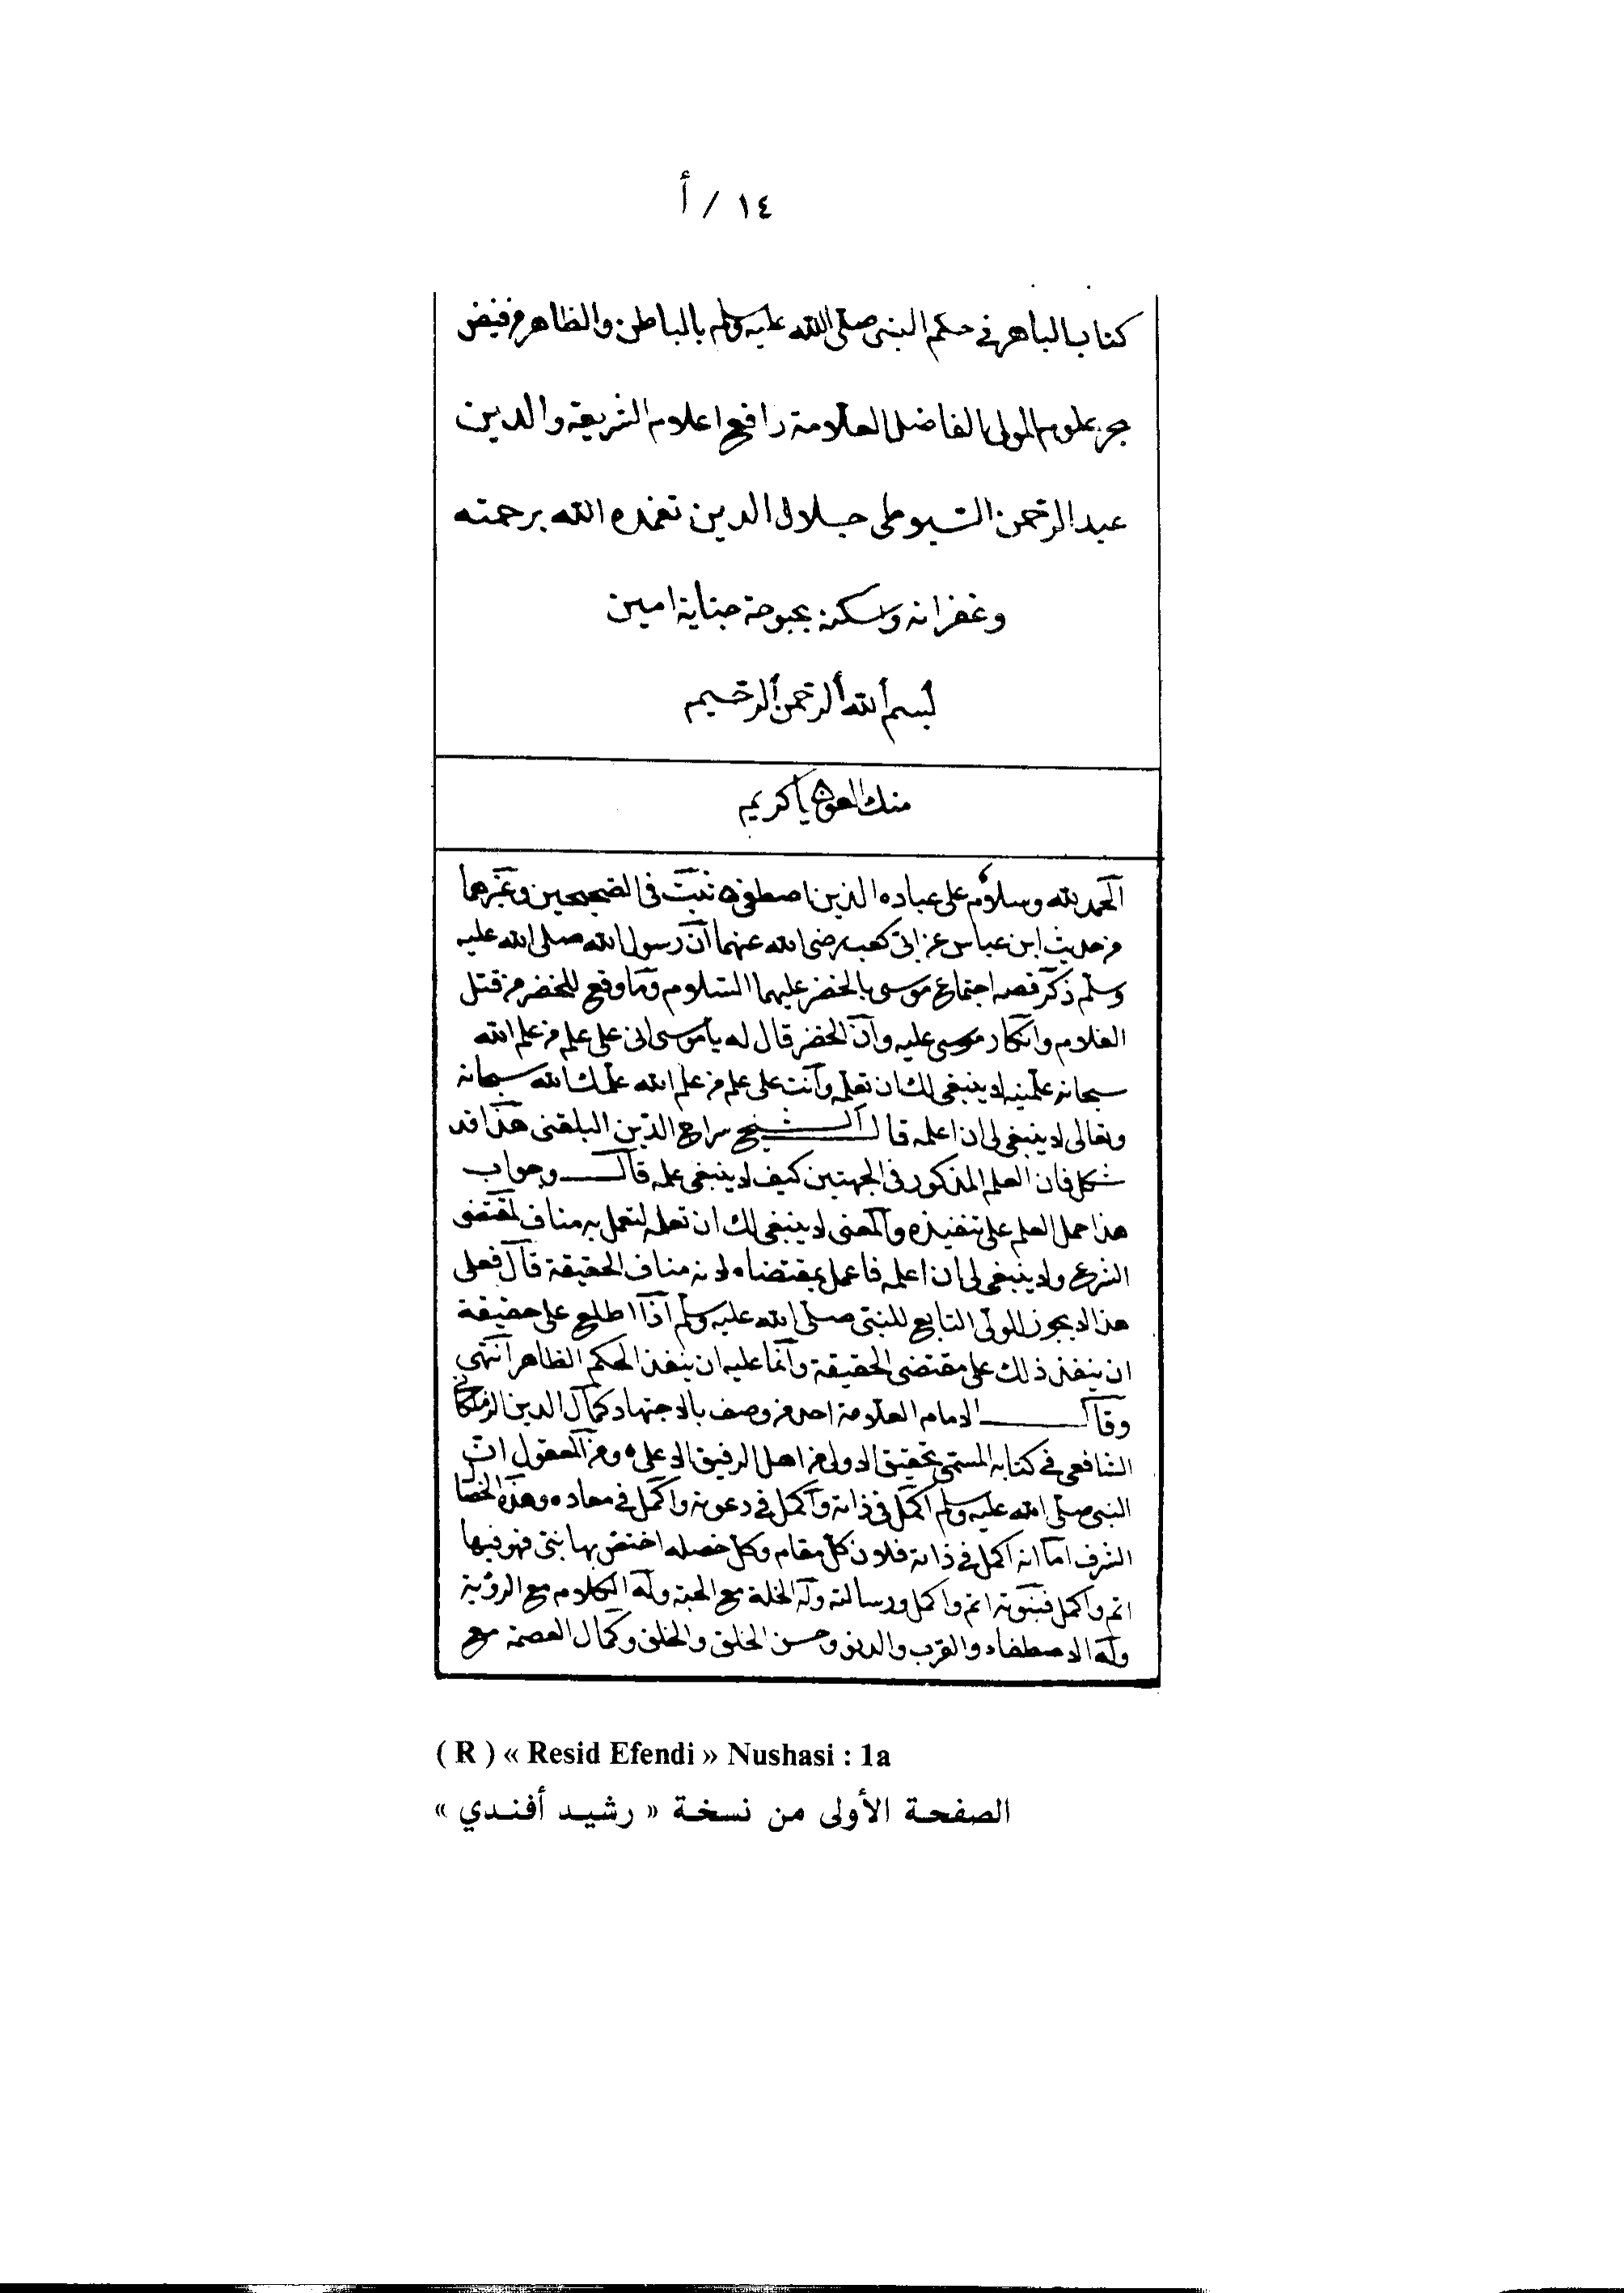 ١٤ / أ
كتاب الباهر في حكم النبى صلى الله عليه وسلم بالباطن والظاهر من فيض
بحر علوم المولى الفاضل العلامة رافع اعلام الشريعة والدين
عبد الرحمن السيوطى جلال الدين تغمده الله برحمته
وغفرانه واسكنه بحبوحة جنانه امين
بسم الله الرحمن الرحيم
منك العون يا كريم
الحمد لله وسلام على عباده الذين اصطفى ثبت فى الصحيحين وغيرهما
من حديث ابن عباس عن ابى كعب رضى الله عنهما ان رسول الله صلى الله عليه
وسلم ذكر قصه اجتماع موسى بالخضر عليهما السلام وما وقع للخضر من قتل
الغلام وانكار موسى عليه وان الخضر قال له يا موسى انى على علم من علم الله
سبحانه علمنيه لا ينبغى لك ان تعلمه وانت على علم من علم الله علمك الله سبحانه
وتعالى لا ينبغى لى ان اعلمه قال الشيخ سراج الدين البلقنى هذا قد
شكل فان العلم المذكور فى الجهتين كيف لا ينبغى علمه قال وجواب
هذا حمل العلم على تنفيذه والمعنى لا ينبغى لك ان تعلمه لتعمل به مناف لمقتضى
الشرع ولا ينبغى لى ان اعلمه فاعمل بمقتضاه لانه مناف الحقيقة قال فعلى
هذا لا يجوز للولى التابع للنبى صلى الله عليه وسلم اذا اطلع على حقيقة
ان ينفذ ذلك على مقتضى الحقيقة وانما عليه ان ينفذ الحكم الظاهر انتهى
وقال الامام العلامة احد من وصف بالاجتهاد كمال الدين الزملكانى
الشافعى في كتابه المسمى بتحقيق الاولى من اهل الرفيق الاعلى ومن المعقول ان
النبى صلى الله عليه وسلم اكمل فى ذاته واكمل فى دعوته واكمل فى معاده وهذه الخصا
الشرف اما انه اكمل فى ذاته فلان كل مقام وكل خصله اختص بها نبى فهو فيها
اتم واكمل فنبوته اتم واكمل ورسالته وله الخلة مع المحبة وله الكلام مع الرؤية
وله الاصطفاء والقرب والدنو وحسن الخلق والخلق وكمال العصمة مع
( R ) « Resid Efendi » Nushasi : 1a
الصفحة الأولى من نسخة « رشيد أفندي »